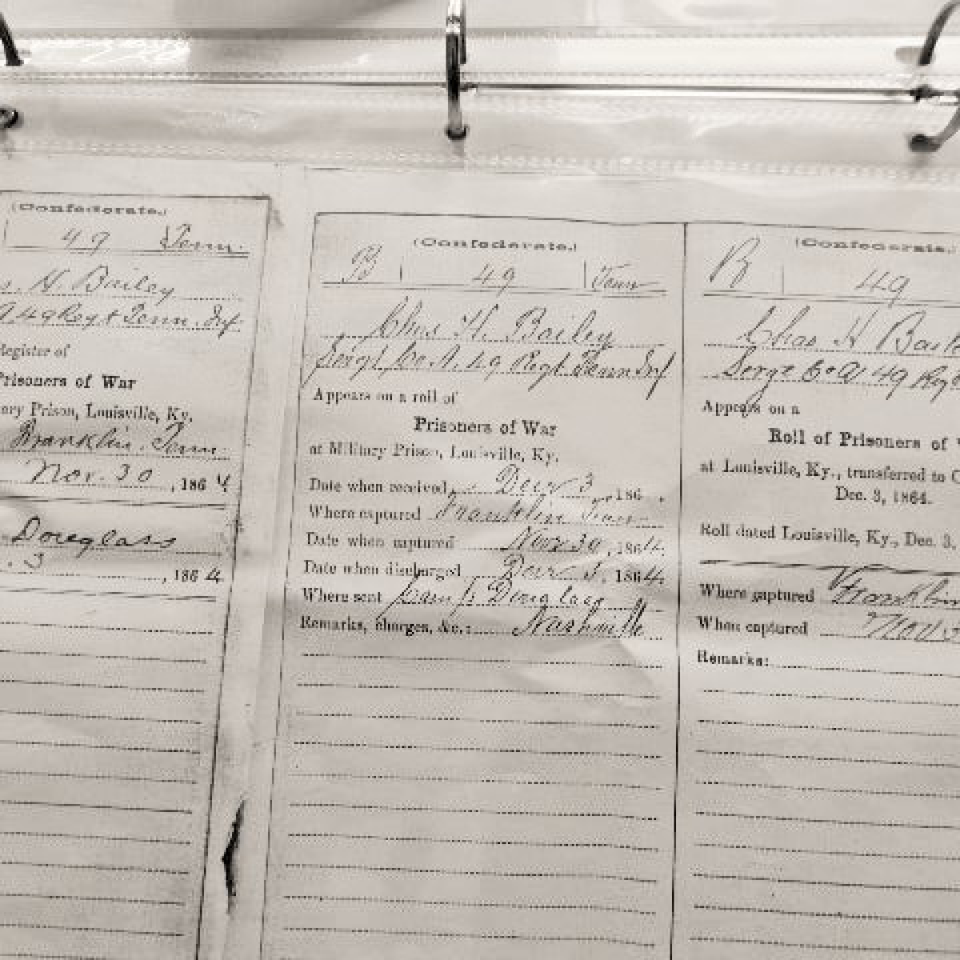 (Confederate.)
49 Tenn.
s. H. Bailey
A 49 Reg't Tenn. Inf.
Register of
Prisoners of War
ary Prison, Louisville, Ky.
Franklin, Tenn.
Nov. 30, 1864
Douglass
. 3, 1864
(Confederate.)
B 49 Tenn
Chas H. Bailey
Sergt Co A. 49 Regt Tenn Inf
Appears on a roll of
Prisoners of War
at Military Prison, Louisville, Ky.
Date when received, Decr 3, 186 .
Where captured Franklin Tenn
Date when captured Nov 30, 1864.
Date when discharged Decr 1864.
Where sent Camp Douglass
Remarks, charges, &c.: Nashville
(Confederate.)
B 49
Chas H Bail
Sergt Co A 49 Reg
Appears on a
Roll of Prisoners of
at Louisville, Ky., transferred to C
Dec. 3, 1864.
Roll dated Louisville, Ky., Dec. 3,
Where captured Franklin
When captured Nov 3
Remarks: